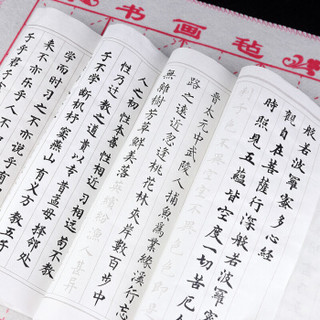 书画毡
般若波羅蜜多心經
觀自在菩薩行深般若波羅
時照見五蘊皆空度一切苦厄
晉太元中武陵人捕魚為業緣溪行忘
路之遠近忽逢桃花林夾岸數百步中
無雜樹芳草鮮美落
英繽紛漁人甚异
人之初性本善性相近習相远苟不教
性乃迁教之道貴以专昔孟母擇邻处
子不学断机杼窦燕山有义方教五子
學而時习之不亦说乎有
來不亦乐乎人不